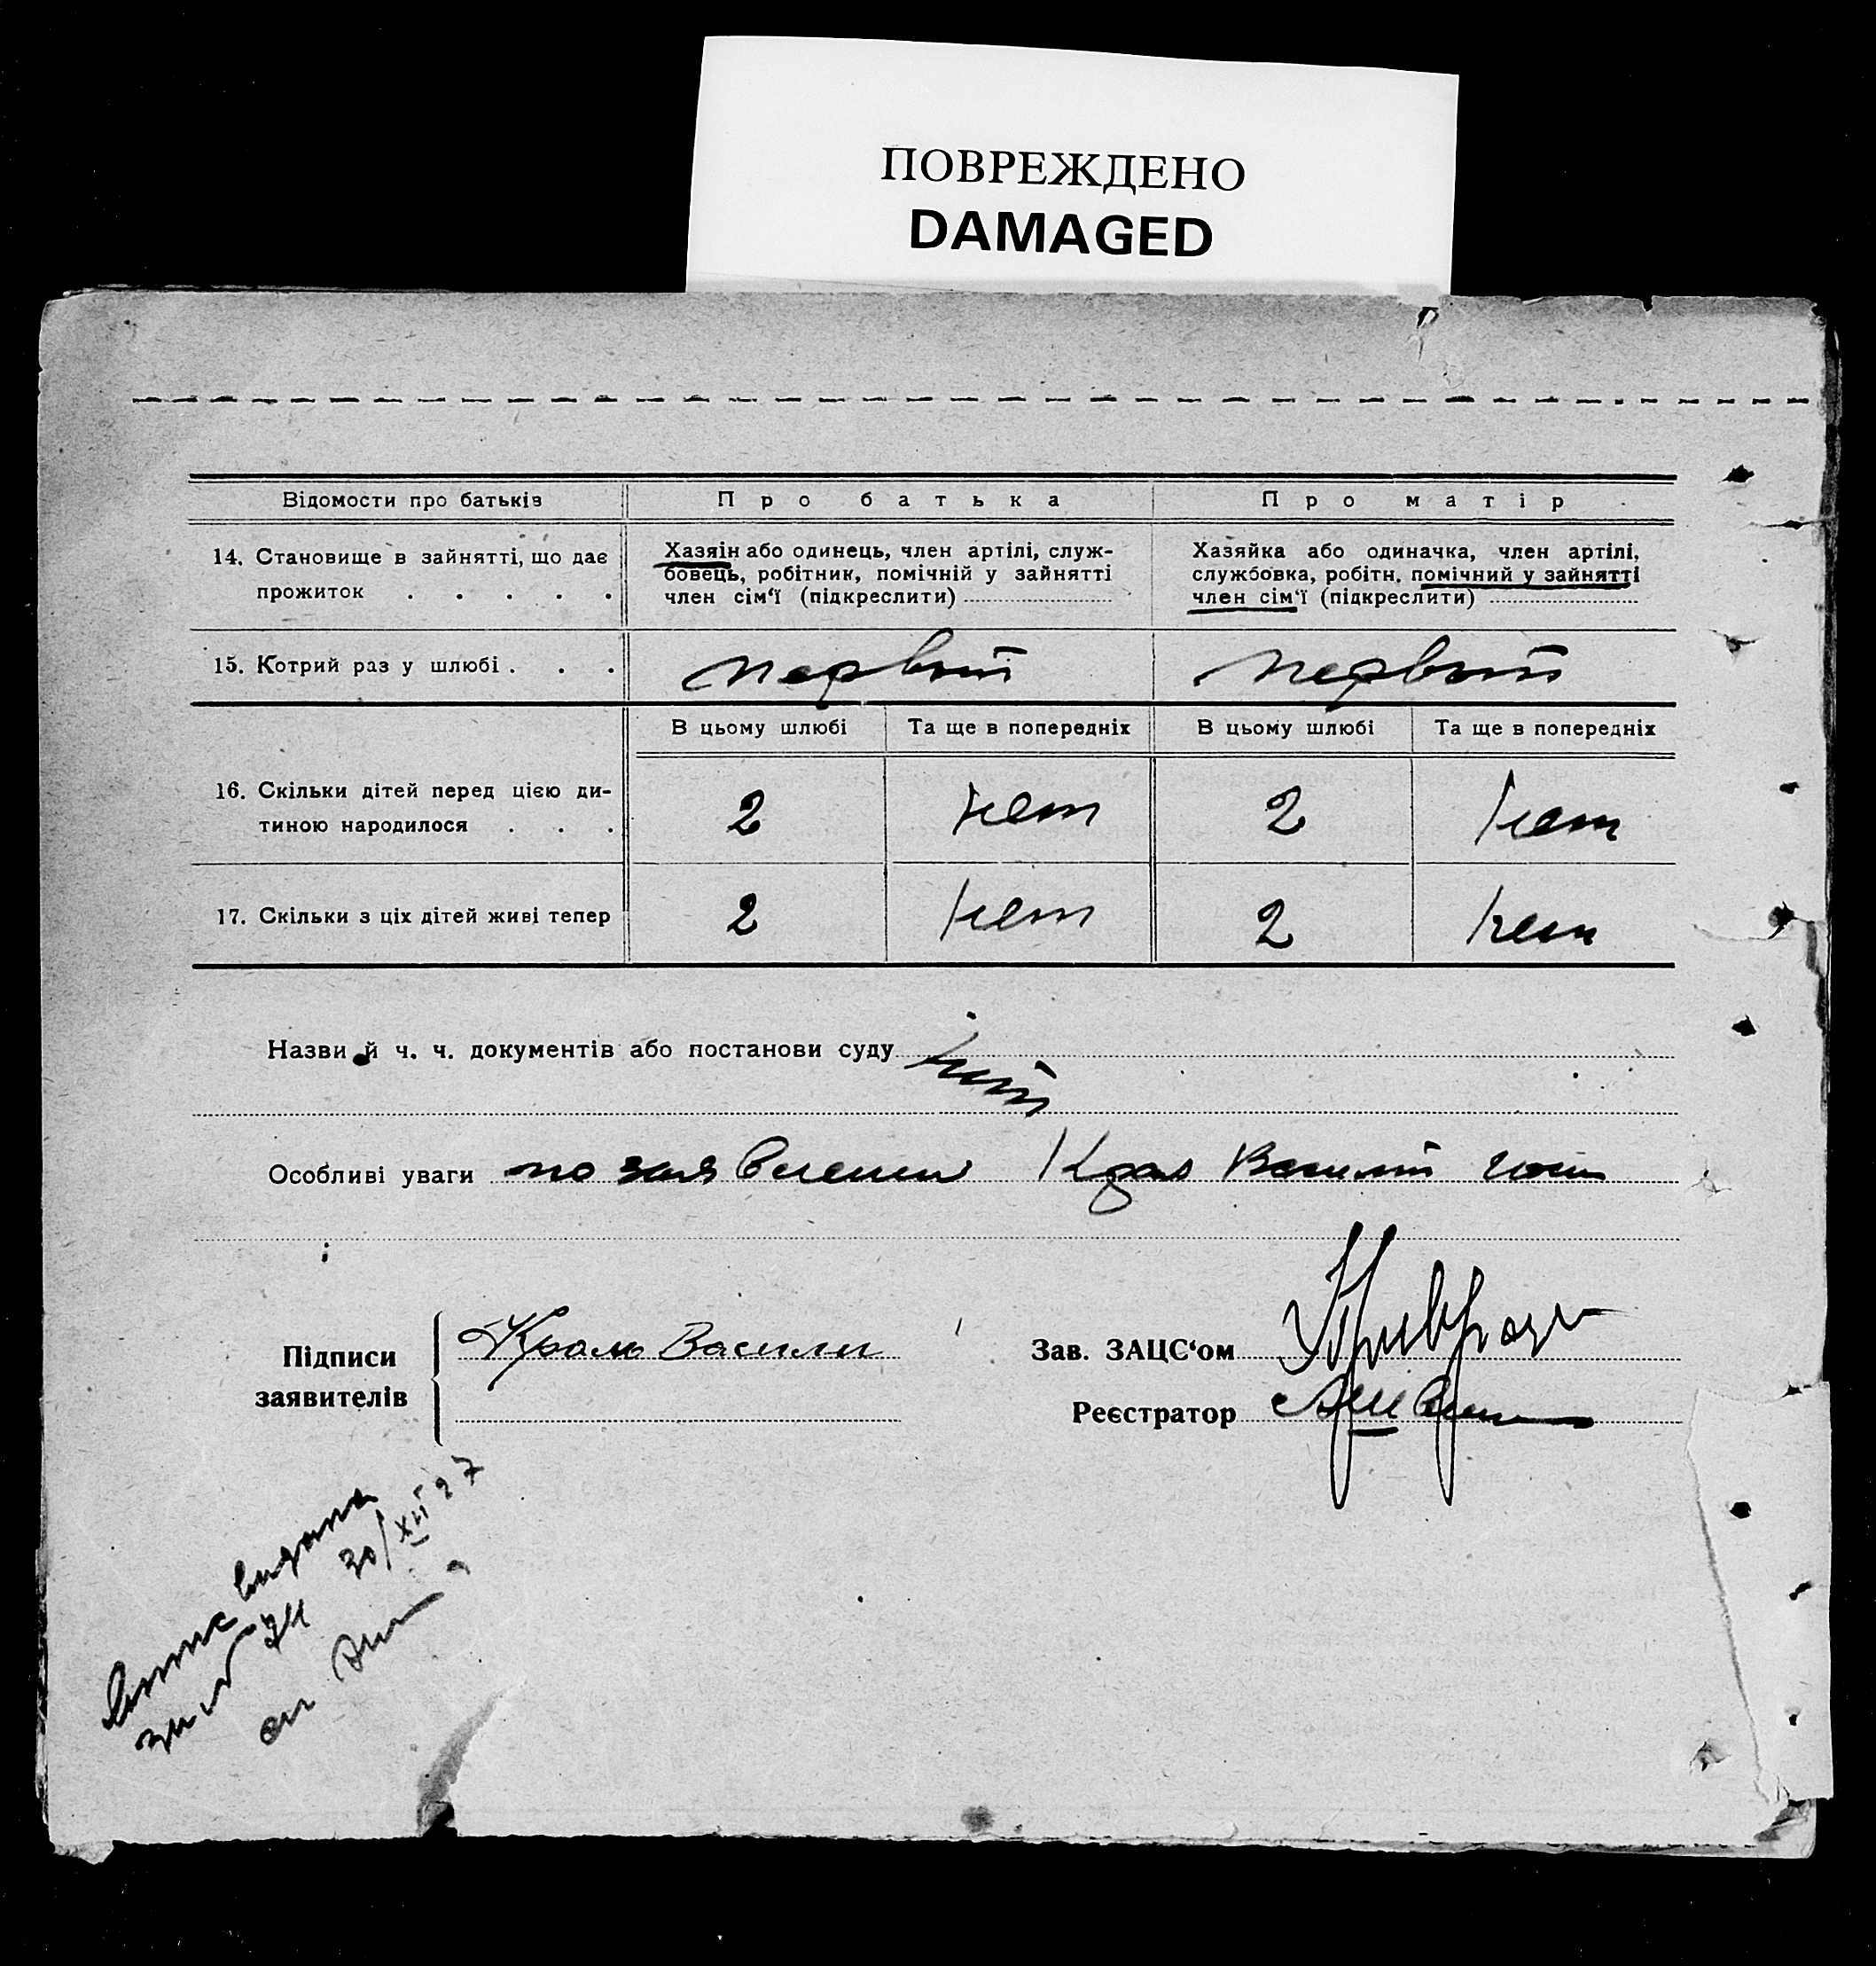 ПОВРЕЖДЕНО
DAMAGED
Відомости про батьків
Про батька
Про матір
14. Становище в зайнятті, що дає
прожиток . . . . .
Хазяін або одинець, член артілі, служ-
бовець, робітник, помічній у зайнятті
член сім‘ї (підкреслити)
Хазяйка або одиначка, член артілі,
службовка, робітн. помічний у зайнятті
член сім‘ї (підкреслити)
15. Котрий раз у шлюбі . . .
первый
первый
В цьому шлюбі
Та ще в попередніх
В цьому шлюбі
Та ще в попередніх
16. Скільки дітей перед цією ди-
тиною народилося . . .
2
нет
2
нет
17. Скільки з ціх дітей живі тепер
2
нет
2
нет
Назви й ч. ч. документів або постанови суду
Особливі уваги по заявлении Василий
Підписи
заявителів
Кроль Васили
Зав. ЗАЦС‘ом
Реєстратор
выдана
30/XII 27